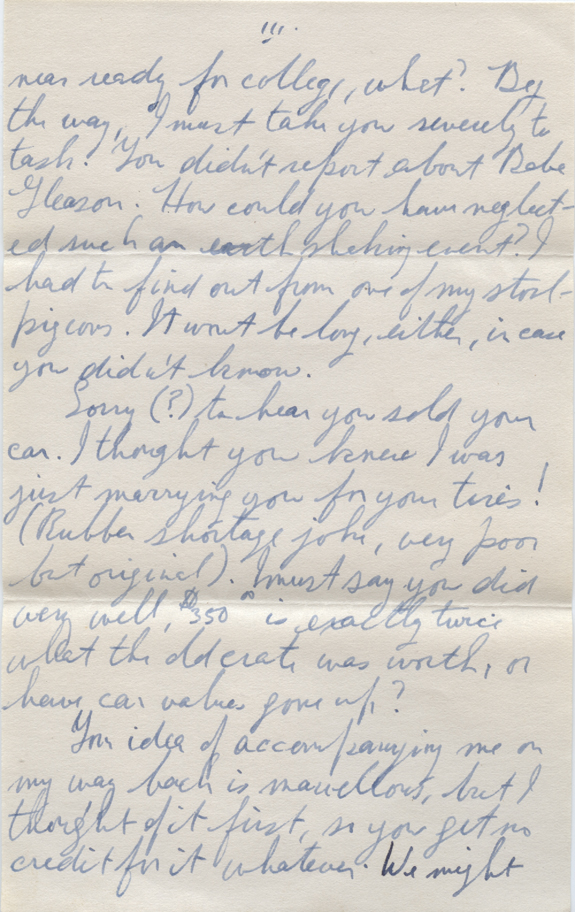 III.
near ready for college, what? By
the way, I must take you severely to
task. You didn't report about Babe
Gleason. How could you have neglect-
ed such an earth shaking event? I
had to find out from one of my stool-
pigeons. It won't be long, either, in case
you didn't know.
Sorry (?) to hear you sold your
car. I thought you knew I was
just marrying you for your tires!
(Rubber shortage joke, very poor
but original). I must say you did
very well, $350 is exactly twice
what the old crate was worth, or
have car values gone up?
Your idea of accompanying me on
my way back is marvellous, but I
thought of it first, so you get no
credit for it whatever. We might